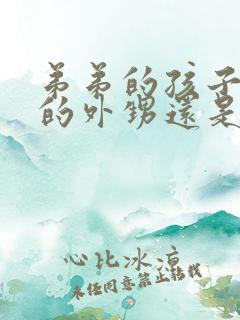 弟弟的孩子
的外甥還是
心比冰涼
未经同意禁止转载